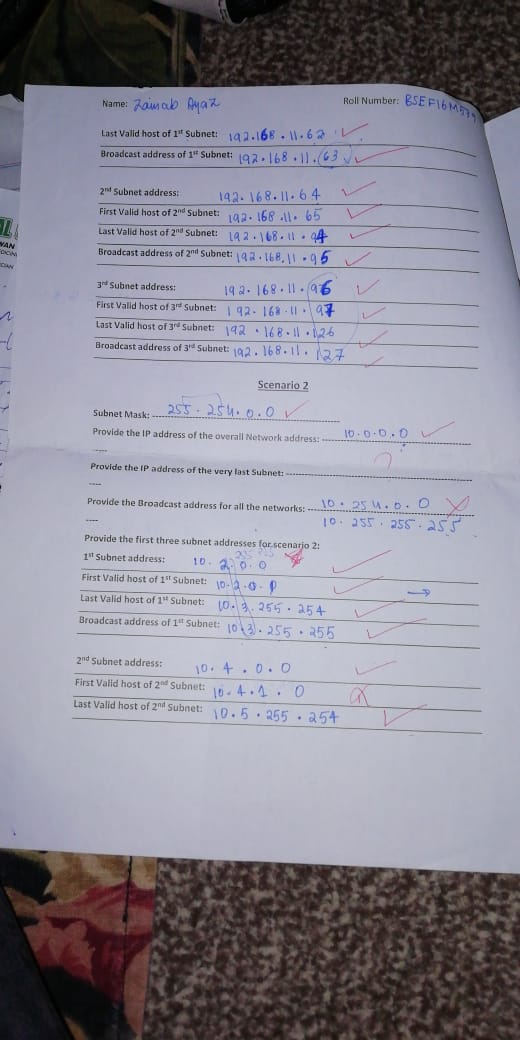 Name: Zainab Ayaz Roll Number: BSEF16M539
Last Valid host of 1st Subnet: 192.168.11.62
Broadcast address of 1st Subnet: 192.168.11.63
2nd Subnet address: 192.168.11.64
First Valid host of 2nd Subnet: 192.168.11.65
Last Valid host of 2nd Subnet: 192.168.11.94
Broadcast address of 2nd Subnet: 192.168.11.95
3rd Subnet address: 192.168.11.96
First Valid host of 3rd Subnet: 192.168.11.97
Last Valid host of 3rd Subnet: 192.168.11.126
Broadcast address of 3rd Subnet: 192.168.11.127
Scenario 2
Subnet Mask: 255.254.0.0
Provide the IP address of the overall Network address: 10.0.0.0
----
?
Provide the IP address of the very last Subnet:
----
Provide the Broadcast address for all the networks: 10.254.0.0
----
10.255.255.255
Provide the first three subnet addresses for scenario 2:
1st Subnet address: 10.2.0.0
First Valid host of 1st Subnet: 10.2.0.1
Last Valid host of 1st Subnet: 10.3.255.254
Broadcast address of 1st Subnet: 10.3.255.255
2nd Subnet address: 10.4.0.0
First Valid host of 2nd Subnet: 10.4.1.0
Last Valid host of 2nd Subnet: 10.5.255.254